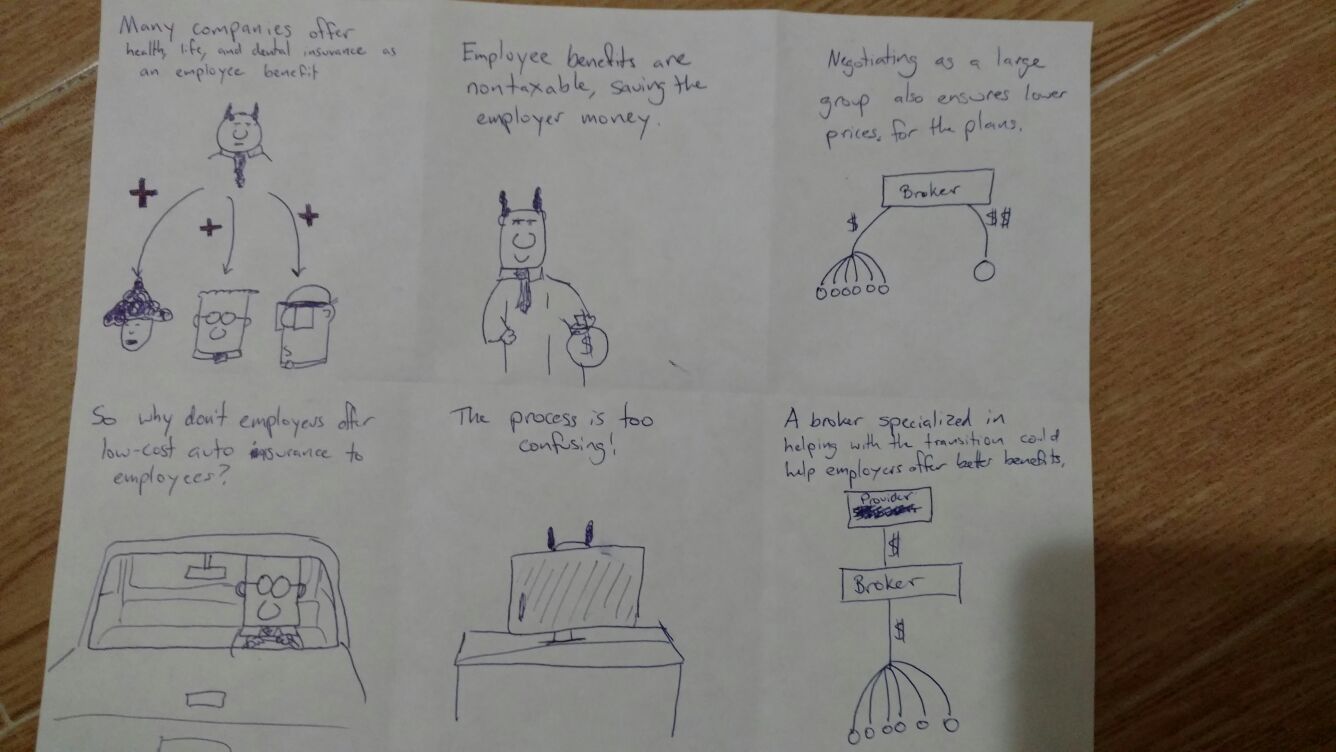 Many companies offer
health, life, and dental insurance as
an employee benefit
Employee benefits are
nontaxable, saving the
employer money.
$
Negotiating as a large
group also ensures lower
prices for the plans.
Broker
$
$$
So why don't employers offer
low-cost auto insurance to
employees?
The process is too
confusing!
A broker specialized in
helping with the transition could
help employers offer better benefits.
Provider
$
Broker
$